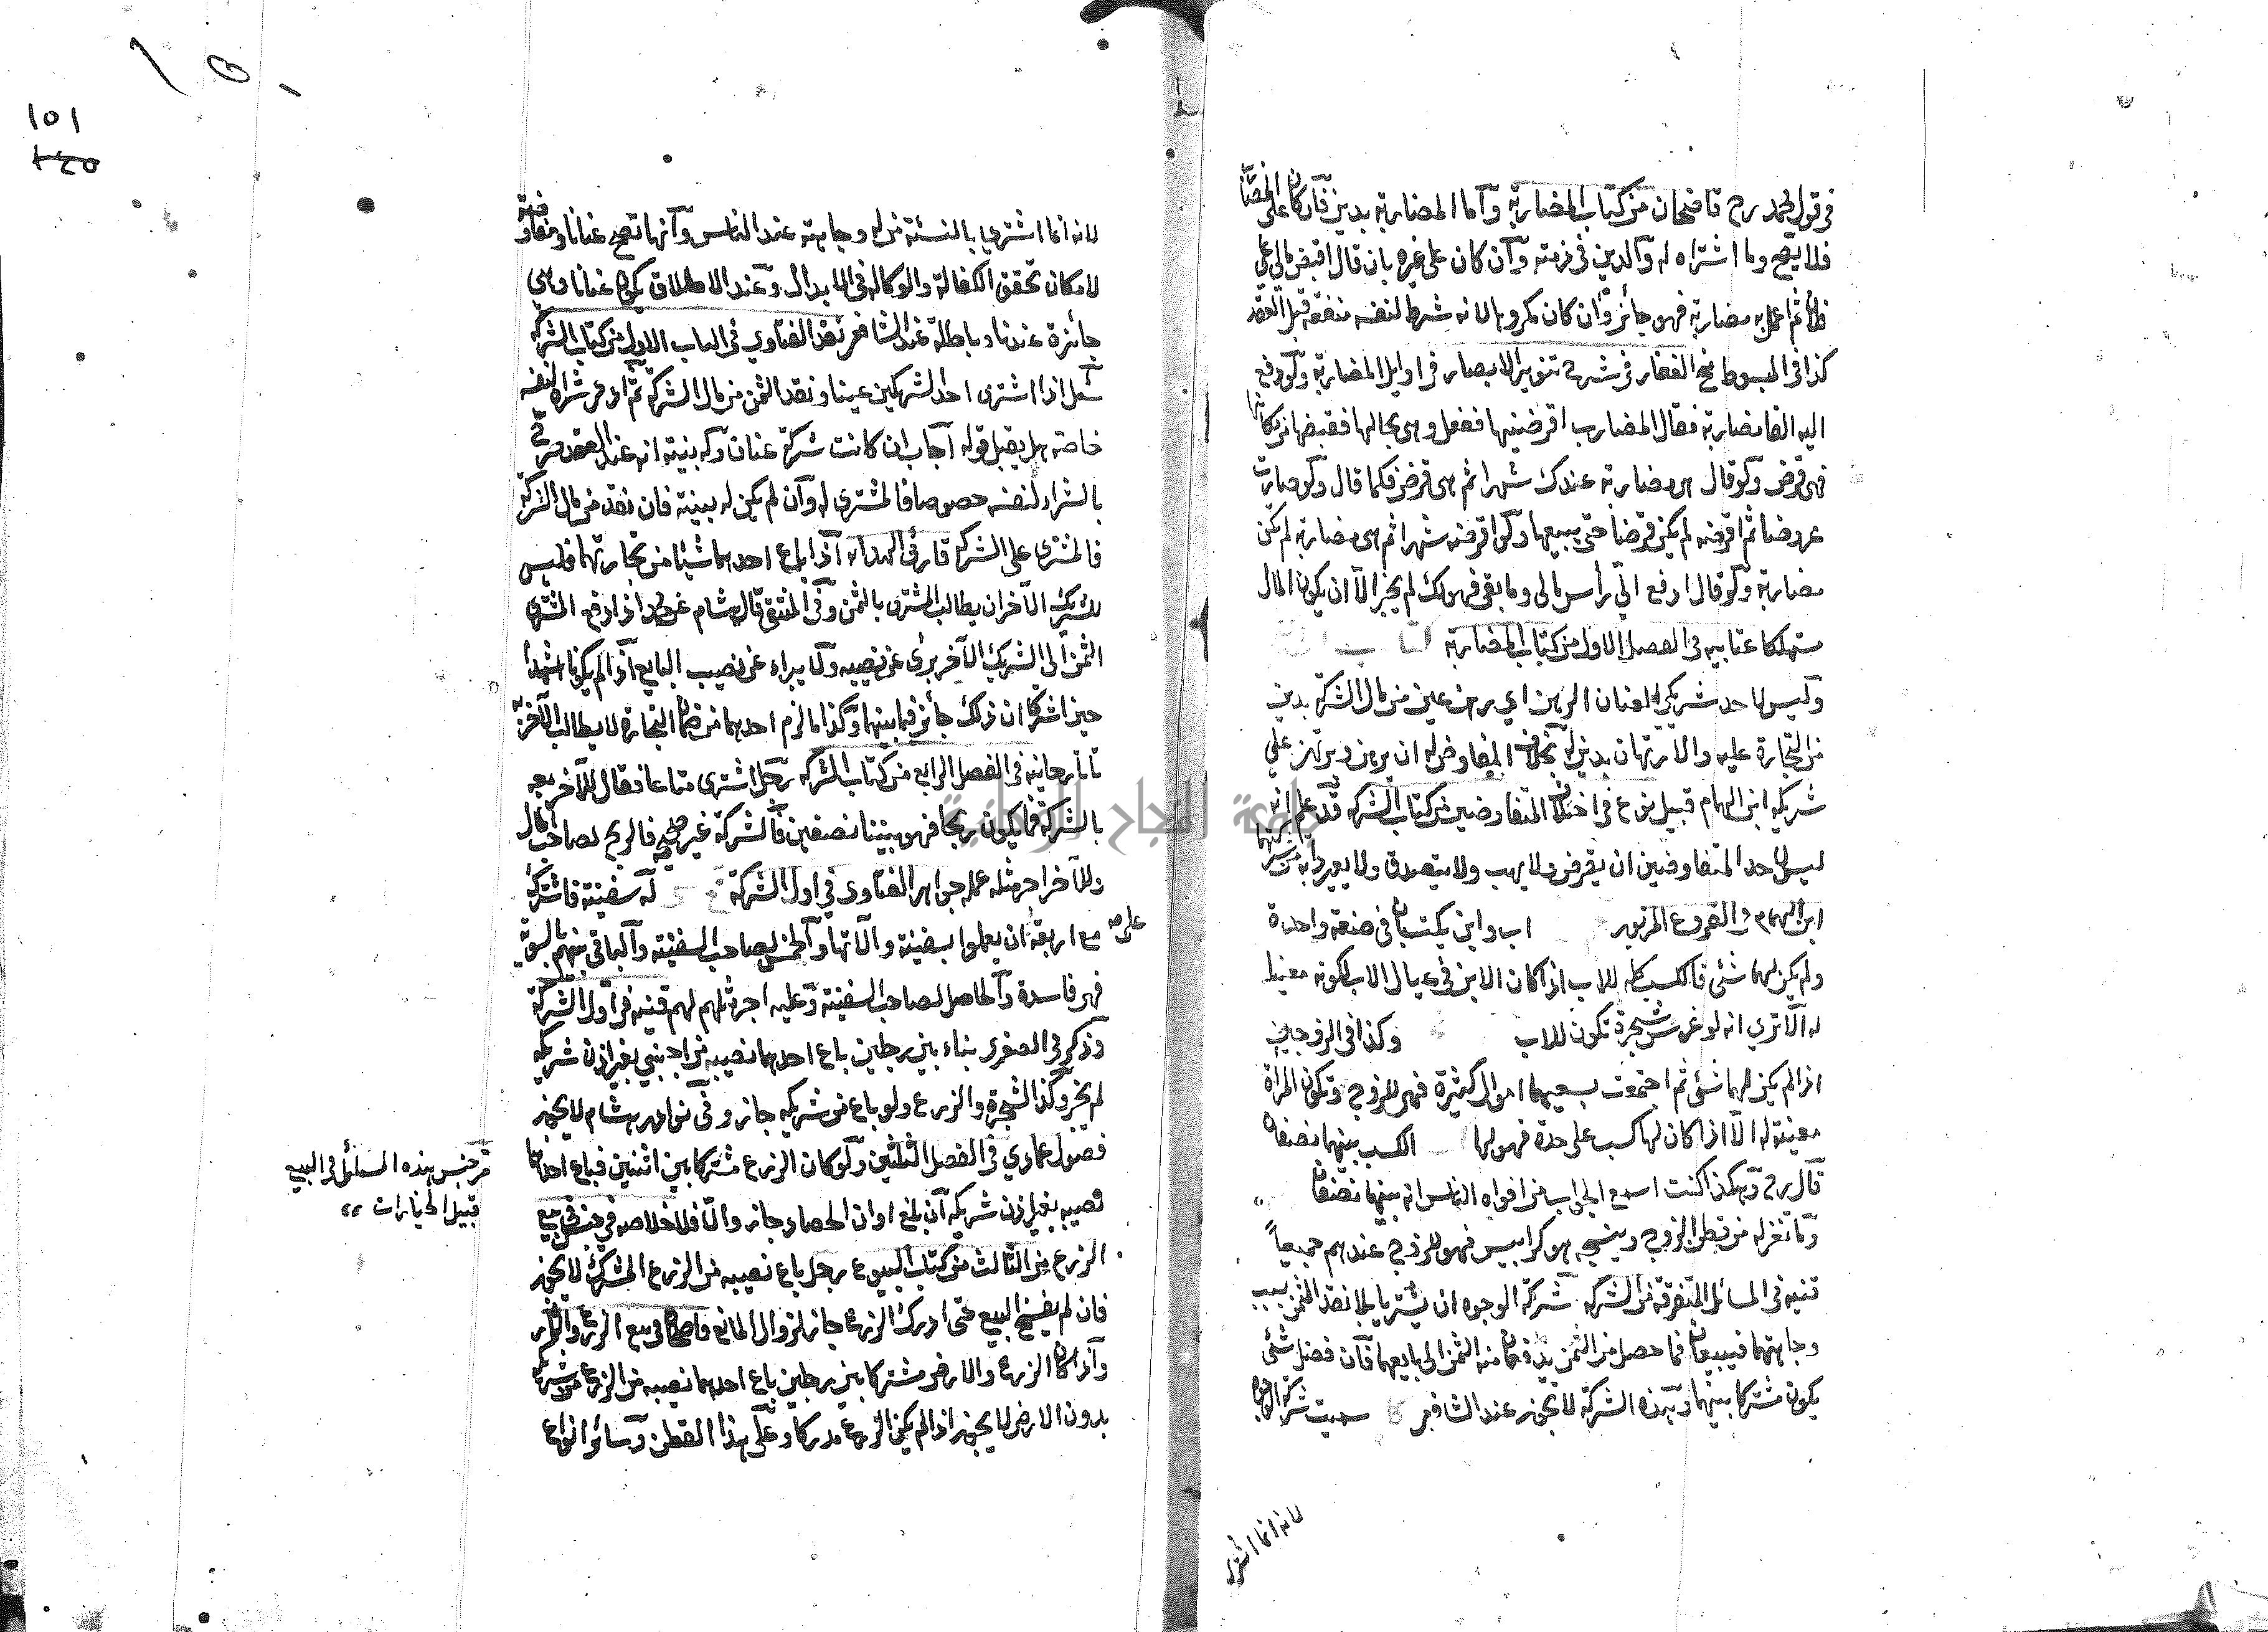 في قول محمد رح قاضيخان من كتاب المضاربة وأما المضاربة بدين فان كان على المضارب
فلا يصح وما اشتراه له والدين في ذمته وان كان على غيره بان قال اقبض مالي على
فلان ثم اعمل به مضاربة فهو جائز وان كان مكروها لانه شرط لنفسه منفعة قبل العقد
كذا في المبسوط منح الغفار في شرح تنوير الابصار في اوايل المضاربة ولو دفع
اليه الفا مضاربة فقال المضارب اقرضنيها ففعل وهي بحالها فقبضها من مكانها
فهي قرض ولو قال هي مضاربة عندك شهرا ثم هي قرض فكما قال ولو صارت
عروضا ثم اقرضه لم يكن قرضا حتى يبيعها ولو اقرضه شهرا ثم هي مضاربة لم تكن
مضاربة ولو قال ادفع الي رأس مالي وما بقي فهو لك لم يجز الا ان يكون المال
مستهلكا عتابيه في الفصل الاول من كتاب المضاربة
وليس لاحد شريكي العنان الرهن اي رهن عين من مال الشركة بدين
من التجارة عليه والارتهان بدين له بخلاف المفاوض له ان يرهن ويرتهن على
شريكه ابن الهمام قبيل نوع في اختلاف المتفاوضين من كتاب الشركه قد علم انه
ليس لاحد المتفاوضين ان يقرض ولا يهب ولا يتصدق ولا يعير دابة من شركتهما
ابن الهمام في الفروع المزبور اب وابن يكتسبان في صنعة واحدة
ولم يكن لهما شئ فالكسب كله للاب اذا كان الابن في عيال الاب لكونه معينا
له الا ترى انه لو غرس شجرة تكون للاب وكذا في الزوجين
اذا لم يكن لهما شئ ثم اجتمعت بسعيهما اموال كثيرة فهي للزوج وتكون المرأة
معينة له الا اذا كان لها كسب على حدة فهو لها الكسب بينهما نصفان
قال رح وهكذا كنت اسمع الجواب من افواه الناس انه بينهما نصفان
وما تغزله من قطن الزوج وينسجه هو كرابيس فهو للزوج عندهم جميعاً
قنيه في المسائل المتفرقة من الشركه شركة الوجوه ان يشتريا بلا نقد الثمن بسبب
وجاهتهما فيبيعان فما حصل من الثمن يدفعان منه الثمن الى بايعهما فان فضل شئ
يكون مشتركا بينهما وهذه الشركة لا تجوز عند الشافعي سميت شركة الوجوه
لانه انما اشترى
لانه انما اشترى بالنسئة من له وجاهته عند الناس وانها تصح عنانا ومفاوضة
لامكان تحقق الكفالة والوكالة في الابدال وعند الاطلاق يكون عنانا وهي
جائزة عندنا وباطلة عند الشافعي نقد الفتاوي في الباب الاول من كتاب الشركه
سئل اذا اشترى احد الشريكين عينا ونقد الثمن من مال الشركة ثم ادعى شراه لنفسه
خاصة هل يقبل قوله اجاب ان كانت شركة عنان وله بينة انه عند العقد صرح
بالشراء لنفسه خصوصا فالمشترى له وان لم يكن له بينة فان نقد من مال الشركة
فالمشترى على الشركه قارئ الهداء اذا باع احدهما شيئا من تجارتهما فليس
للشريك الآخر ان يطالب المشترى بالثمن وفي المنتقى قال هشام عن محمد اذا دفع المشترى
الثمن الى الشريك الآخر برئ عن نصيبه ولا يبراء عن نصيب البايع اذا لم يكونا شهدا
حين اشتركا ان ذلك جائز فيما بينهما وكذا ما لزم احدهما من ضمان التجارة لا يطالب الآخر به
تاتارخانيه في الفصل الرابع من كتاب الشركه رجل اشترى متاعا فقال للآخر بعه
بالشركة فما يكون ربحا فهو بيننا نصفين فالشركة غير صحيحه فالربح لصاحب المال
وللآخر اجر مثله عمله جواهر الفتاوى في اول الشركة له سفينة فاشترك
مع اربعة على ان يعملوا بسفينته والاتها والخمس لصاحب السفينة والباقي بينهم بالسوية
فهي فاسدة والحاصل لصاحب السفينة وعليه اجر مثلهم لهم قنيه في اول الشركة
وذكر في الصغرى بناء بين رجلين باع احدهما نصيبه من اجنبي بغير اذن شريكه
لم يجز وكذا الشجرة والزرع ولو باع من شريكه جاز وفي نوادر هشام لا يجوز
فصول عمادي في الفصل الثلثين ولو كان الزرع مشتركا بين اثنين فباع احدهما
نصيبه بغير اذن شريكه ان بلغ اوان الحصاد جاز والا فلا خلاصه في جنس في بيع
الزرع من الثالث من كتاب البيوع رجل باع نصيبه من الزرع المشترك لا يجوز
فان لم يفسخ البيع حتى ادرك الزرع جاز لزوال المانع قاضيخان في بيع الزرع والثمار
واذا كان الزرع والارض مشتركا بين رجلين باع احدهما نصيبه من الزرع من شريكه
بدون الارض لا يجوز اذا لم يكن الزرع مدركا وعلى هذا القطن وسائر انواع
مر جنس هذه المسائل في البيع
قبيل الخيارات
101